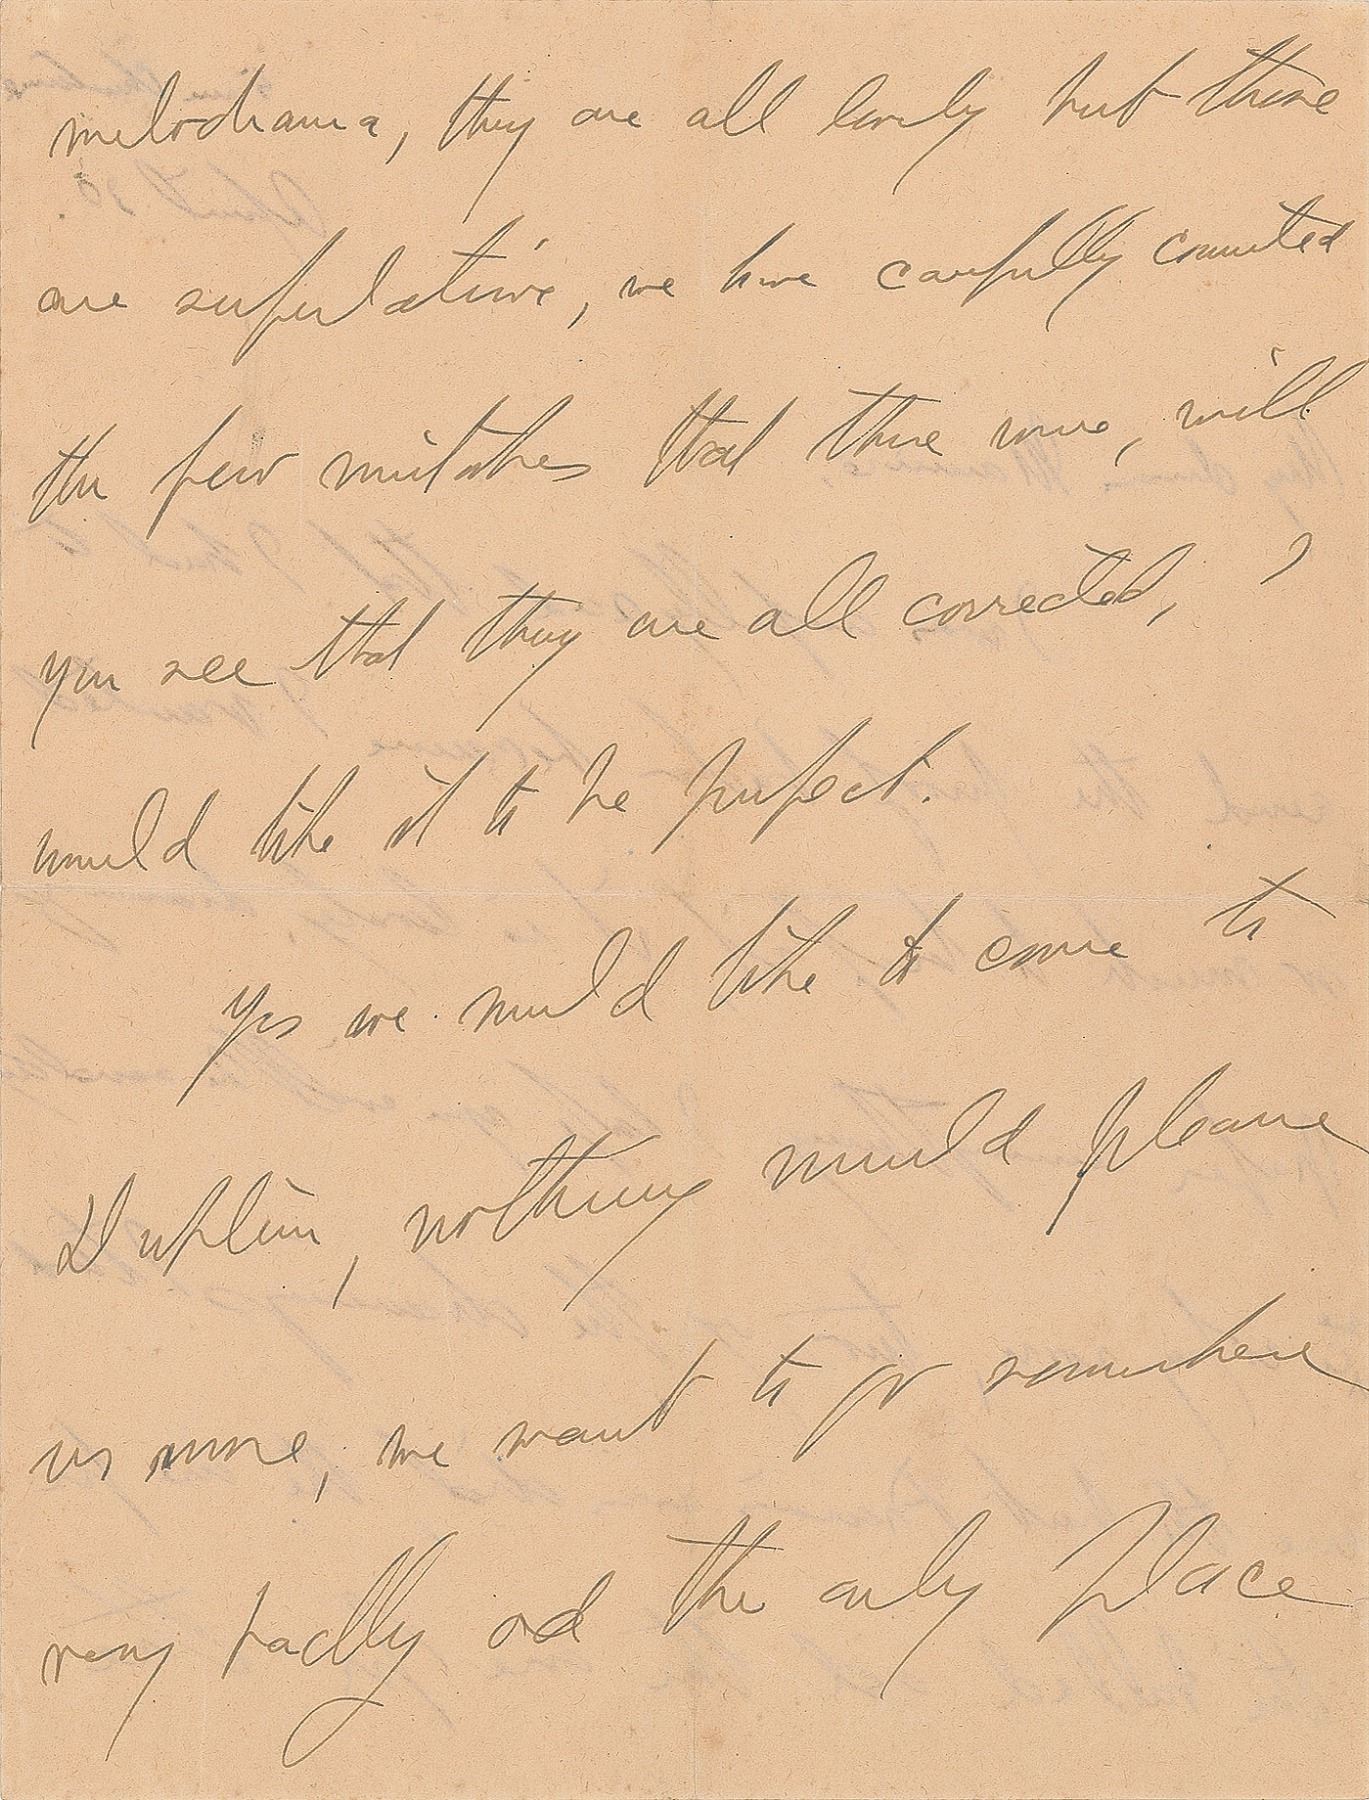 melodrama, they are all lovely but those
are superlative, we have carefully counted
the few mistakes that there were, will
you see that they are all corrected, I
would like it to be perfect.
Yes we would like to come to
Dublin, nothing would please
us more, we want to go somewhere
very badly and the only place